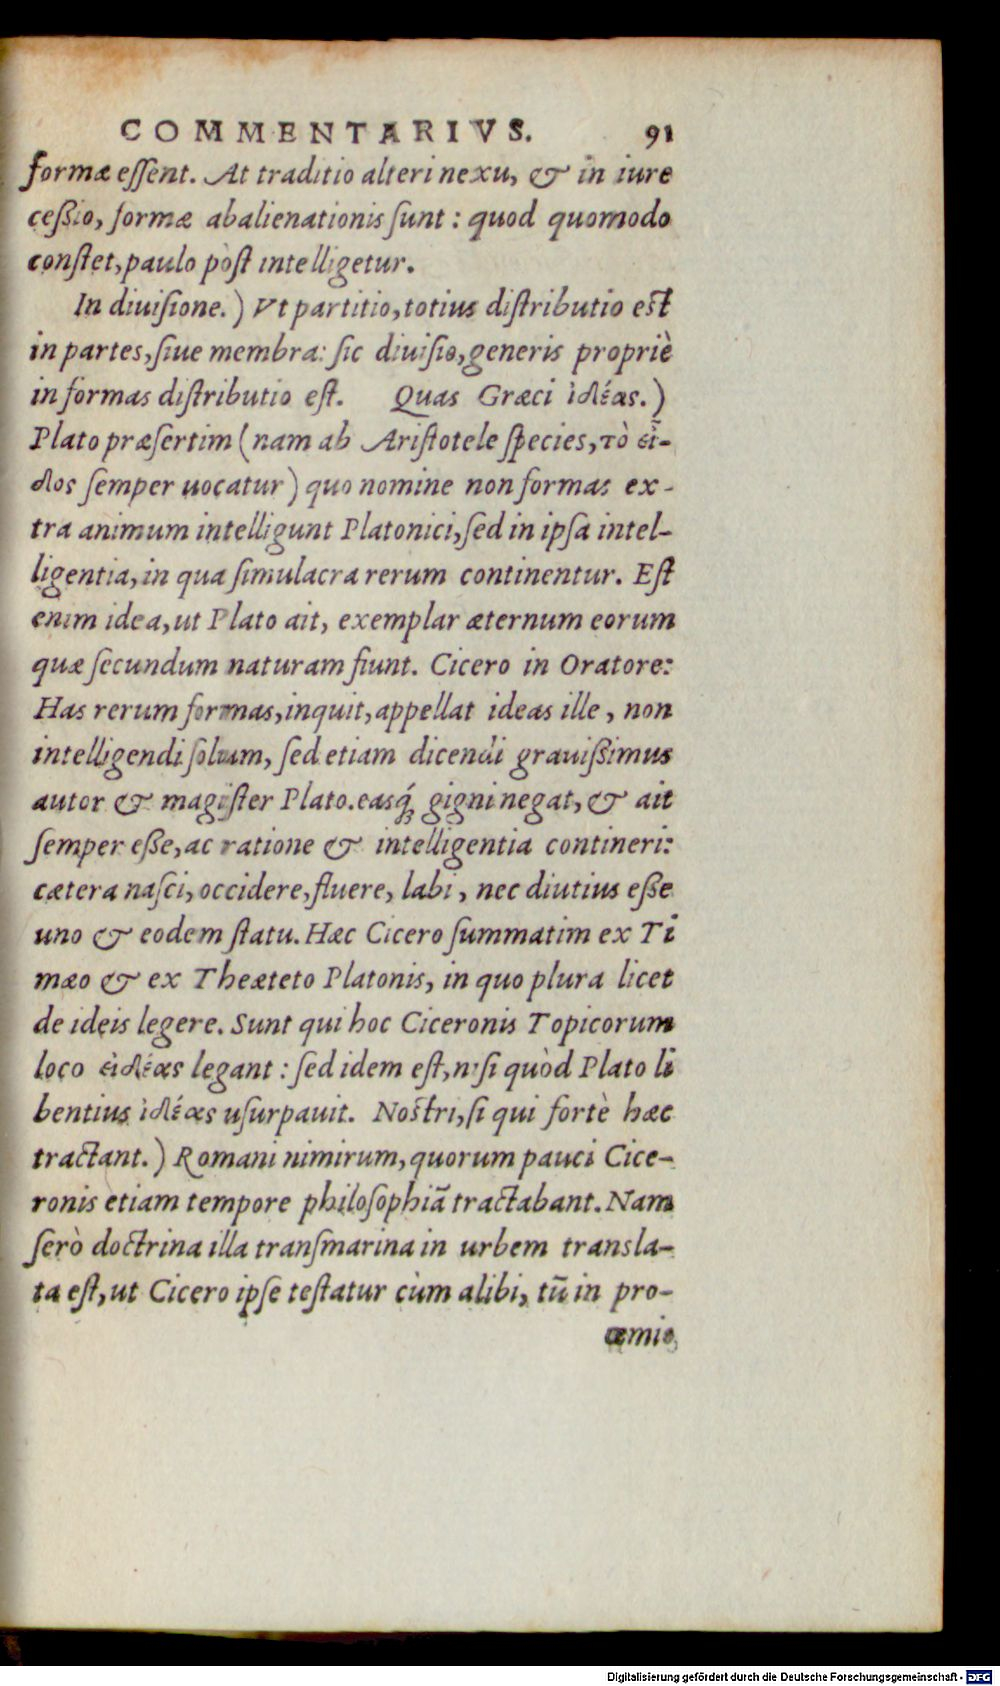 COMMENTARIVS. 91
formæ eſſent. At traditio alteri nexu, & in iure
ceßio, formæ abalienationis ſunt: quod quomodo
conſtet, paulo pòſt intelligetur.
In diuiſione.) Vt partitio, totius diſtributio eſt
in partes, ſiue membra: ſic diuiſio, generis propriè
in formas diſtributio eſt. Quas Græci ἰδέας.)
Plato præſertim (nam ab Ariſtotele ſpecies, τὸ εἶ-
δος ſemper uocatur) quo nomine non formas ex-
tra animum intelligunt Platonici, ſed in ipſa intel-
ligentia, in qua ſimulacra rerum continentur. Eſt
enim idea, ut Plato ait, exemplar æternum eorum
quæ ſecundum naturam fiunt. Cicero in Oratore:
Has rerum formas, inquit, appellat ideas ille, non
intelligendi ſolum, ſed etiam dicendi grauißimus
autor & magiſter Plato. easq́; gigni negat, & ait
ſemper eße, ac ratione & intelligentia contineri:
cætera naſci, occidere, fluere, labi, nec diutius eße
uno & eodem ſtatu. Hæc Cicero ſummatim ex Ti
mæo & ex Theæteto Platonis, in quo plura licet
de ideis legere. Sunt qui hoc Ciceronis Topicorum
loco εἰδέας legant: ſed idem eſt, niſi quòd Plato li
bentius ἰδέας uſurpauit. Noſtri, ſi qui fortè hæc
tractant.) Romani nimirum, quorum pauci Cice-
ronis etiam tempore philoſophiã tractabant. Nam
ſerò doctrina illa tranſmarina in urbem transla-
ta eſt, ut Cicero ipſe teſtatur cùm alibi, tũ in pro-
œmio
Digitalisierung gefördert durch die Deutsche Forschungsgemeinschaft - DFG